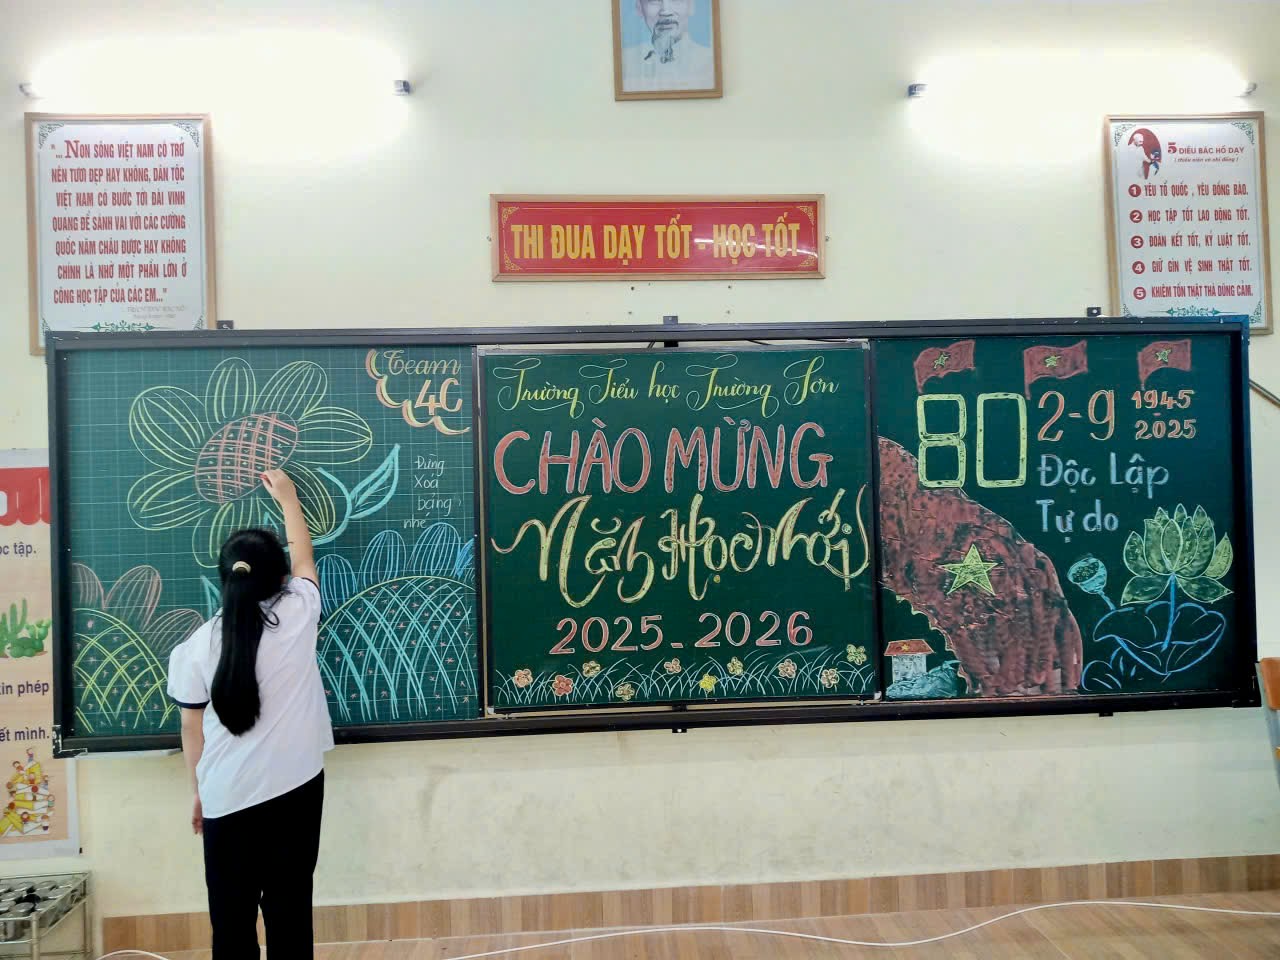 "... NON SÔNG VIỆT NAM CÓ TRỞ
NÊN TƯƠI ĐẸP HAY KHÔNG, DÂN TỘC
VIỆT NAM CÓ BƯỚC TỚI ĐÀI VINH
QUANG ĐỂ SÁNH VAI VỚI CÁC CƯỜNG
QUỐC NĂM CHÂU ĐƯỢC HAY KHÔNG
CHÍNH LÀ NHỜ MỘT PHẦN LỚN Ở
CÔNG HỌC TẬP CỦA CÁC EM..."
THI ĐUA DẠY TỐT - HỌC TỐT
5 ĐIỀU BÁC HỒ DẠY
( thiếu niên và nhi đồng )
1 YÊU TỔ QUỐC , YÊU ĐỒNG BÀO.
2 HỌC TẬP TỐT LAO ĐỘNG TỐT.
3 ĐOÀN KẾT TỐT, KỶ LUẬT TỐT.
4 GIỮ GÌN VỆ SINH THẬT TỐT.
5 KHIÊM TỐN THẬT THÀ DŨNG CẢM.
Team
4C
Đừng
Xoá
bảng
nhé
Trường Tiểu học Trường Sơn
CHÀO MỪNG
Năm Học Mới
2025 - 2026
80 2-9 1945
-
2025
Độc Lập
Tự do
ọc tập.
xin phép
ết mình.